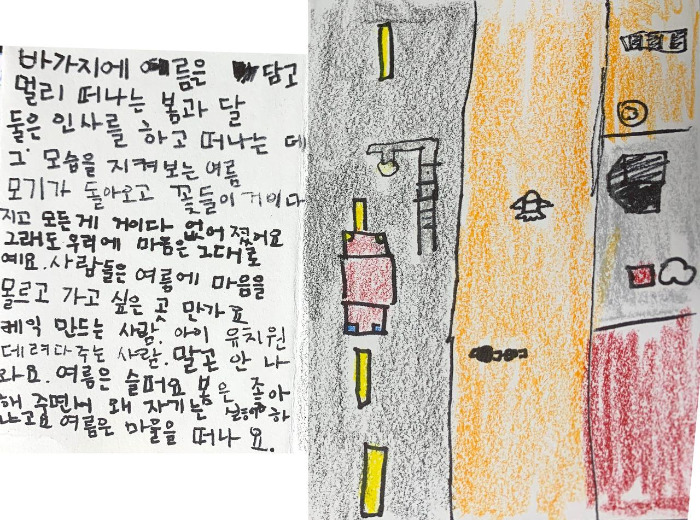 바가지에 여름은 담고
멀리 떠나는 봄과 달
둘은 인사를 하고 떠나는 데
그 모습을 지켜보는 여름
모기가 돌아오고 꽃들이 거이다
지고 모든게 거이다 없어졌어요
그래도 우리에 마음은 그대로
예요. 사람들은 여름에 마음을
모르고 가고 싶은 곳 만가요
케익 만드는 사람. 아이 유치원
데려다주는 사람. 말곤 안 나
와요. 여름은 슬퍼요 봄은 좋아
해 주면서 왜 자기는 싫어하
냐고요 여름은 마을을 떠나요.